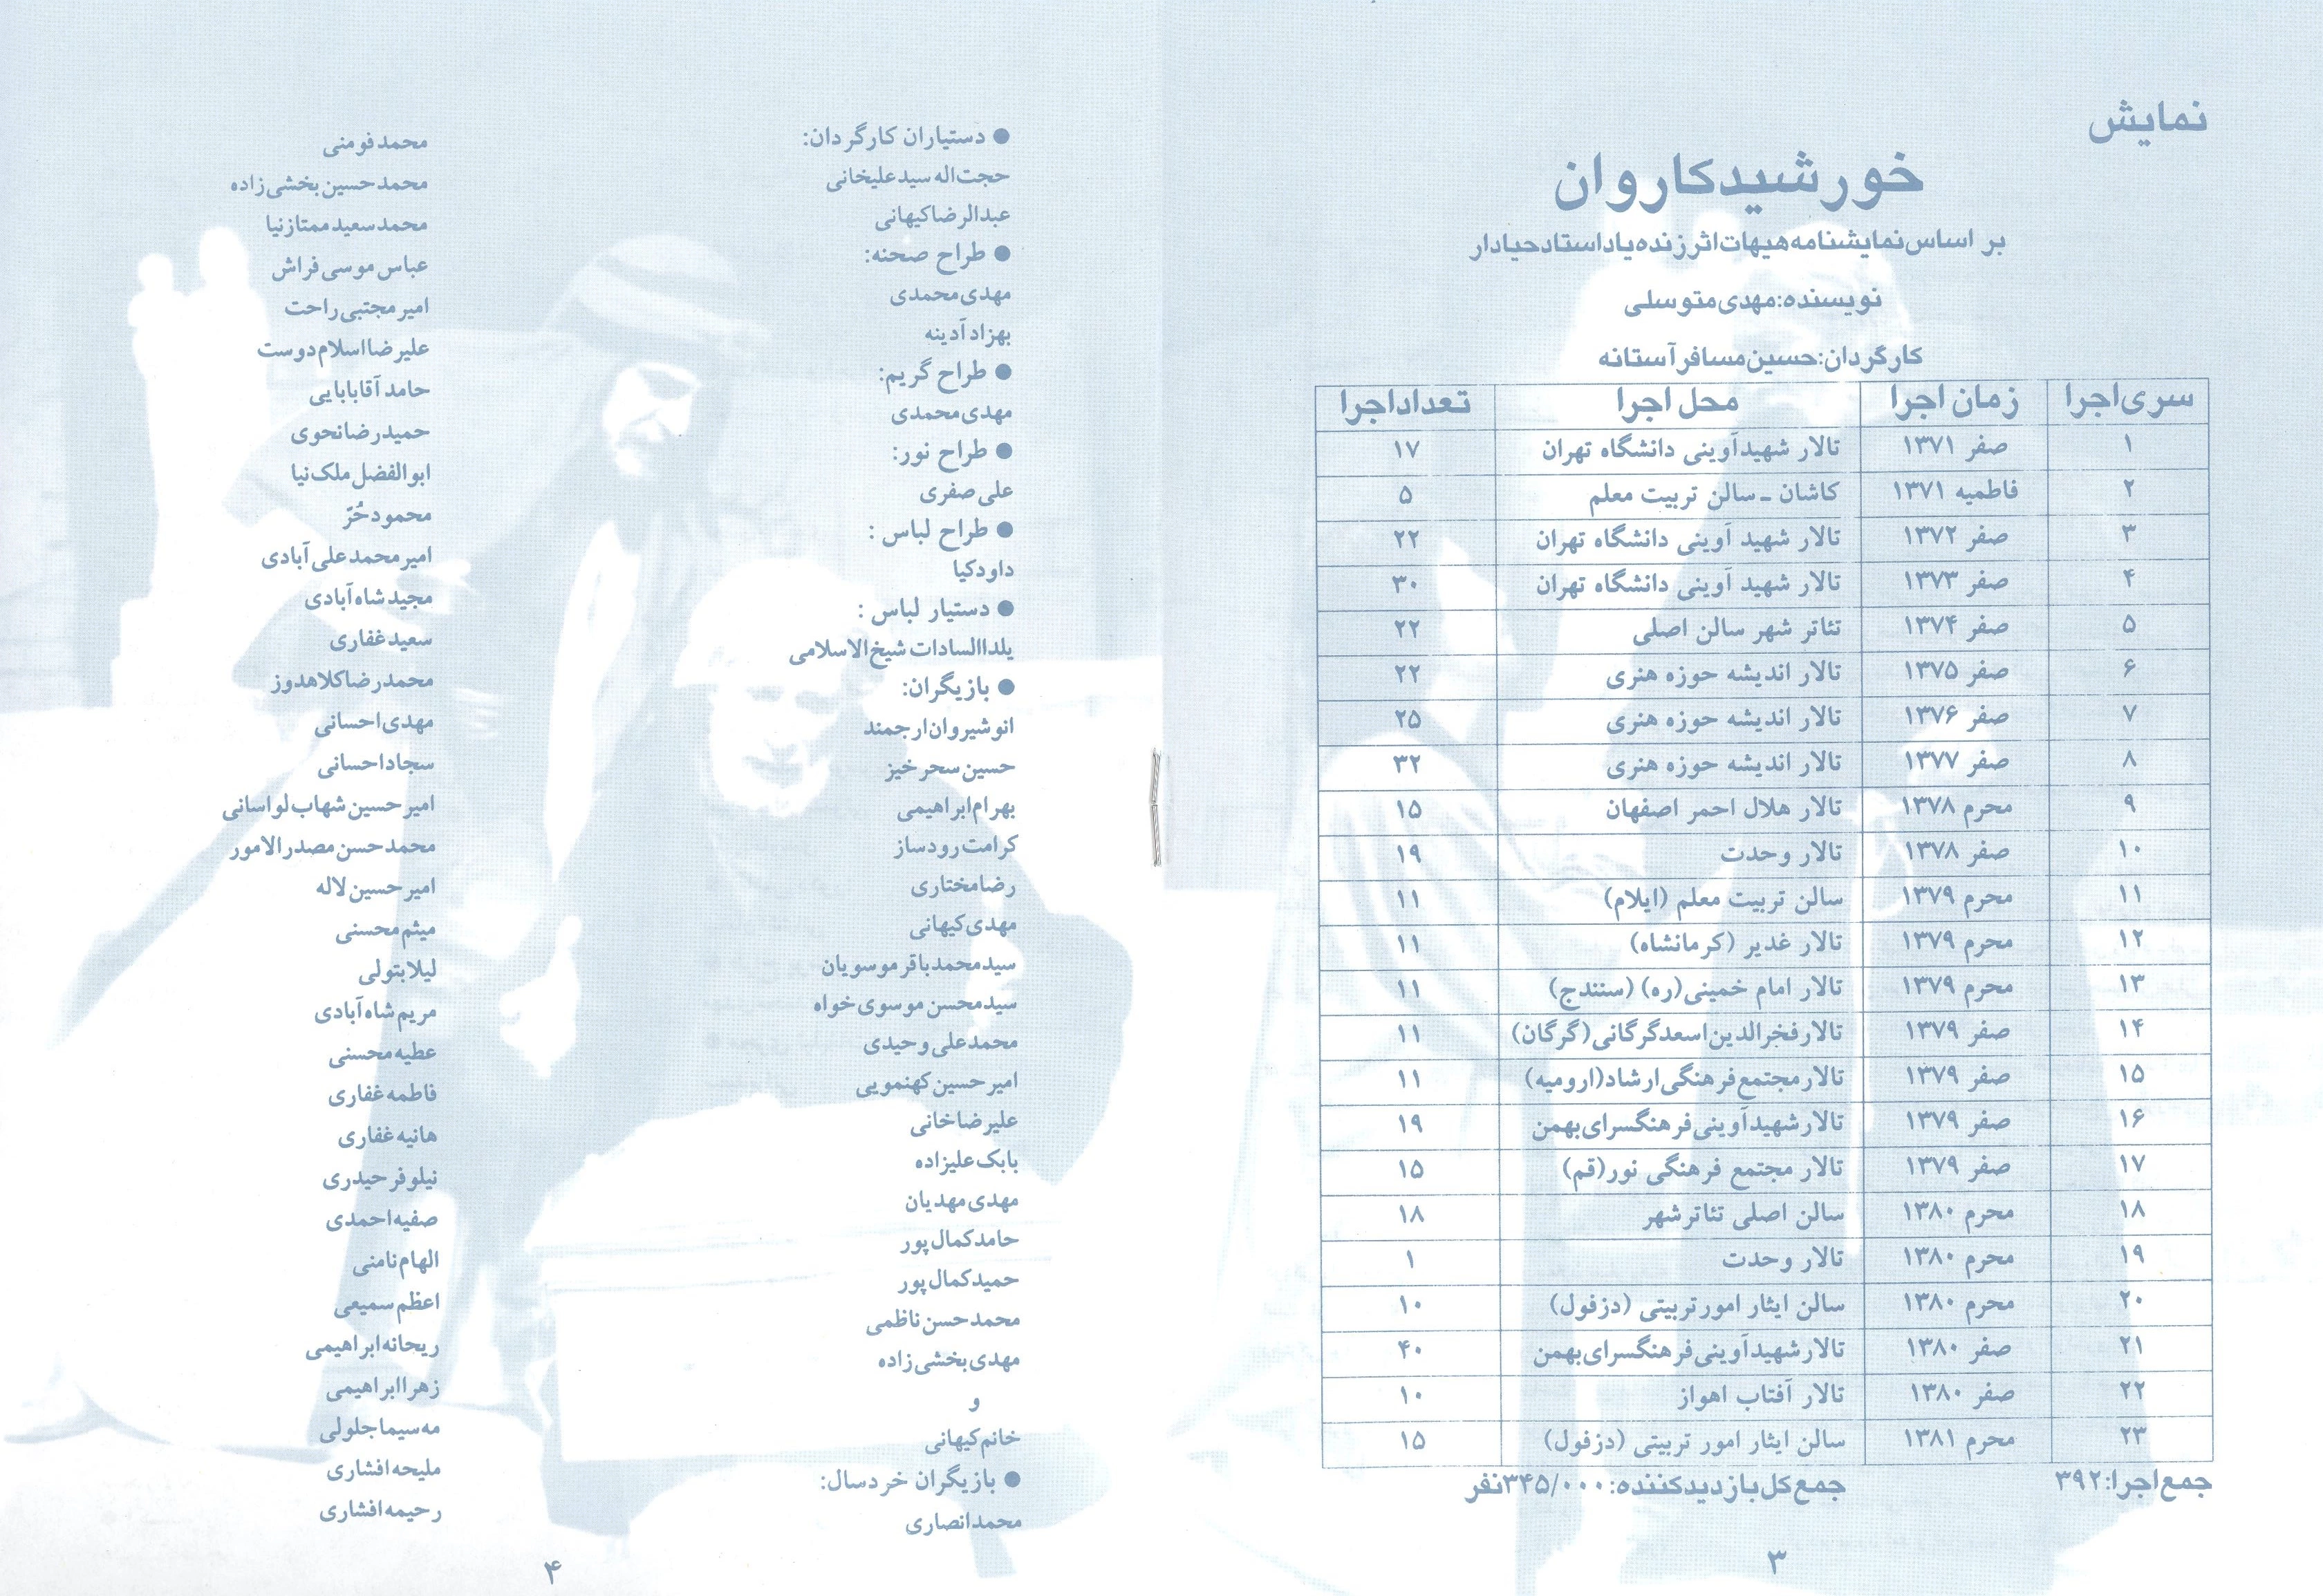 نمایش
خورشید کاروان
بر اساس نمایشنامه هیهات اثر زنده یاد استاد حیادار
نویسنده: مهدی متوسلی
کارگردان: حسین مسافر آستانه
سری اجرا	زمان اجرا	محل اجرا	تعداد اجرا
۱	صفر ۱۳۷۱	تالار شهید آوینی دانشگاه تهران	۱۷
۲	فاطمیه ۱۳۷۱	کاشان ـ سالن تربیت معلم	۵
۳	صفر ۱۳۷۲	تالار شهید آوینی دانشگاه تهران	۲۲
۴	صفر ۱۳۷۳	تالار شهید آوینی دانشگاه تهران	۳۰
۵	صفر ۱۳۷۴	تئاتر شهر سالن اصلی	۲۲
۶	صفر ۱۳۷۵	تالار اندیشه حوزه هنری	۲۲
۷	صفر ۱۳۷۶	تالار اندیشه حوزه هنری	۲۵
۸	صفر ۱۳۷۷	تالار اندیشه حوزه هنری	۳۲
۹	محرم ۱۳۷۸	تالار هلال احمر اصفهان	۱۵
۱۰	صفر ۱۳۷۸	تالار وحدت	۱۹
۱۱	محرم ۱۳۷۹	سالن تربیت معلم (ایلام)	۱۱
۱۲	محرم ۱۳۷۹	تالار غدیر (کرمانشاه)	۱۱
۱۳	محرم ۱۳۷۹	تالار امام خمینی(ره) (سنندج)	۱۱
۱۴	صفر ۱۳۷۹	تالار فخرالدین اسعد گرگانی (گرگان)	۱۱
۱۵	صفر ۱۳۷۹	تالار مجتمع فرهنگی ارشاد (ارومیه)	۱۱
۱۶	صفر ۱۳۷۹	تالار شهید آوینی فرهنگسرای بهمن	۱۹
۱۷	صفر ۱۳۷۹	تالار مجتمع فرهنگی نور (قم)	۱۵
۱۸	محرم ۱۳۸۰	سالن اصلی تئاتر شهر	۱۸
۱۹	محرم ۱۳۸۰	تالار وحدت	۱
۲۰	محرم ۱۳۸۰	سالن ایثار امور تربیتی (دزفول)	۱۰
۲۱	صفر ۱۳۸۰	تالار شهید آوینی فرهنگسرای بهمن	۴۰
۲۲	صفر ۱۳۸۰	تالار آفتاب اهواز	۱۰
۲۳	محرم ۱۳۸۱	سالن ایثار امور تربیتی (دزفول)	۱۵
جمع اجرا: ۳۹۲	جمع کل بازدید کننده: ۳۴۵/۰۰۰ نفر
۳
● دستیاران کارگردان:
حجت اله سید علیخانی
عبدالرضا کیهانی
● طراح صحنه:
مهدی محمدی
بهزاد آدینه
● طراح گریم:
مهدی محمدی
● طراح نور:
علی صفری
● طراح لباس :
داود کیا
● دستیار لباس :
یلدا السادات شیخ الاسلامی
● بازیگران:
انوشیروان ارجمند
حسین سحر خیز
بهرام ابراهیمی
کرامت رودساز
رضا مختاری
مهدی کیهانی
سید محمد باقر موسویان
سید محسن موسوی خواه
محمد علی وحیدی
امیر حسین کهنمویی
علیرضا خانی
بابک علیزاده
مهدی مهدیان
حامد کمال پور
حمید کمال پور
محمد حسن ناظمی
مهدی بخشی زاده
و
خانم کیهانی
● بازیگران خردسال:
محمد انصاری
محمد فومنی
محمد حسین بخشی زاده
محمد سعید ممتاز نیا
عباس موسی فراش
امیر مجتبی راحت
علیرضا اسلام دوست
حامد آقابابایی
حمید رضا نحوی
ابوالفضل ملک نیا
محمود حُرّ
امیر محمد علی آبادی
مجید شاه آبادی
سعید غفاری
محمد رضا کلاهدوز
مهدی احسانی
سجاد احسانی
امیر حسین شهاب لواسانی
محمد حسن مصدر الامور
امیر حسین لاله
میثم محسنی
لیلا بتولی
مریم شاه آبادی
عطیه محسنی
فاطمه غفاری
هانیه غفاری
نیلوفر حیدری
صفیه احمدی
الهام نامنی
اعظم سمیعی
ریحانه ابراهیمی
زهرا ابراهیمی
مه سیما جلولی
ملیحه افشاری
رحیمه افشاری
۴